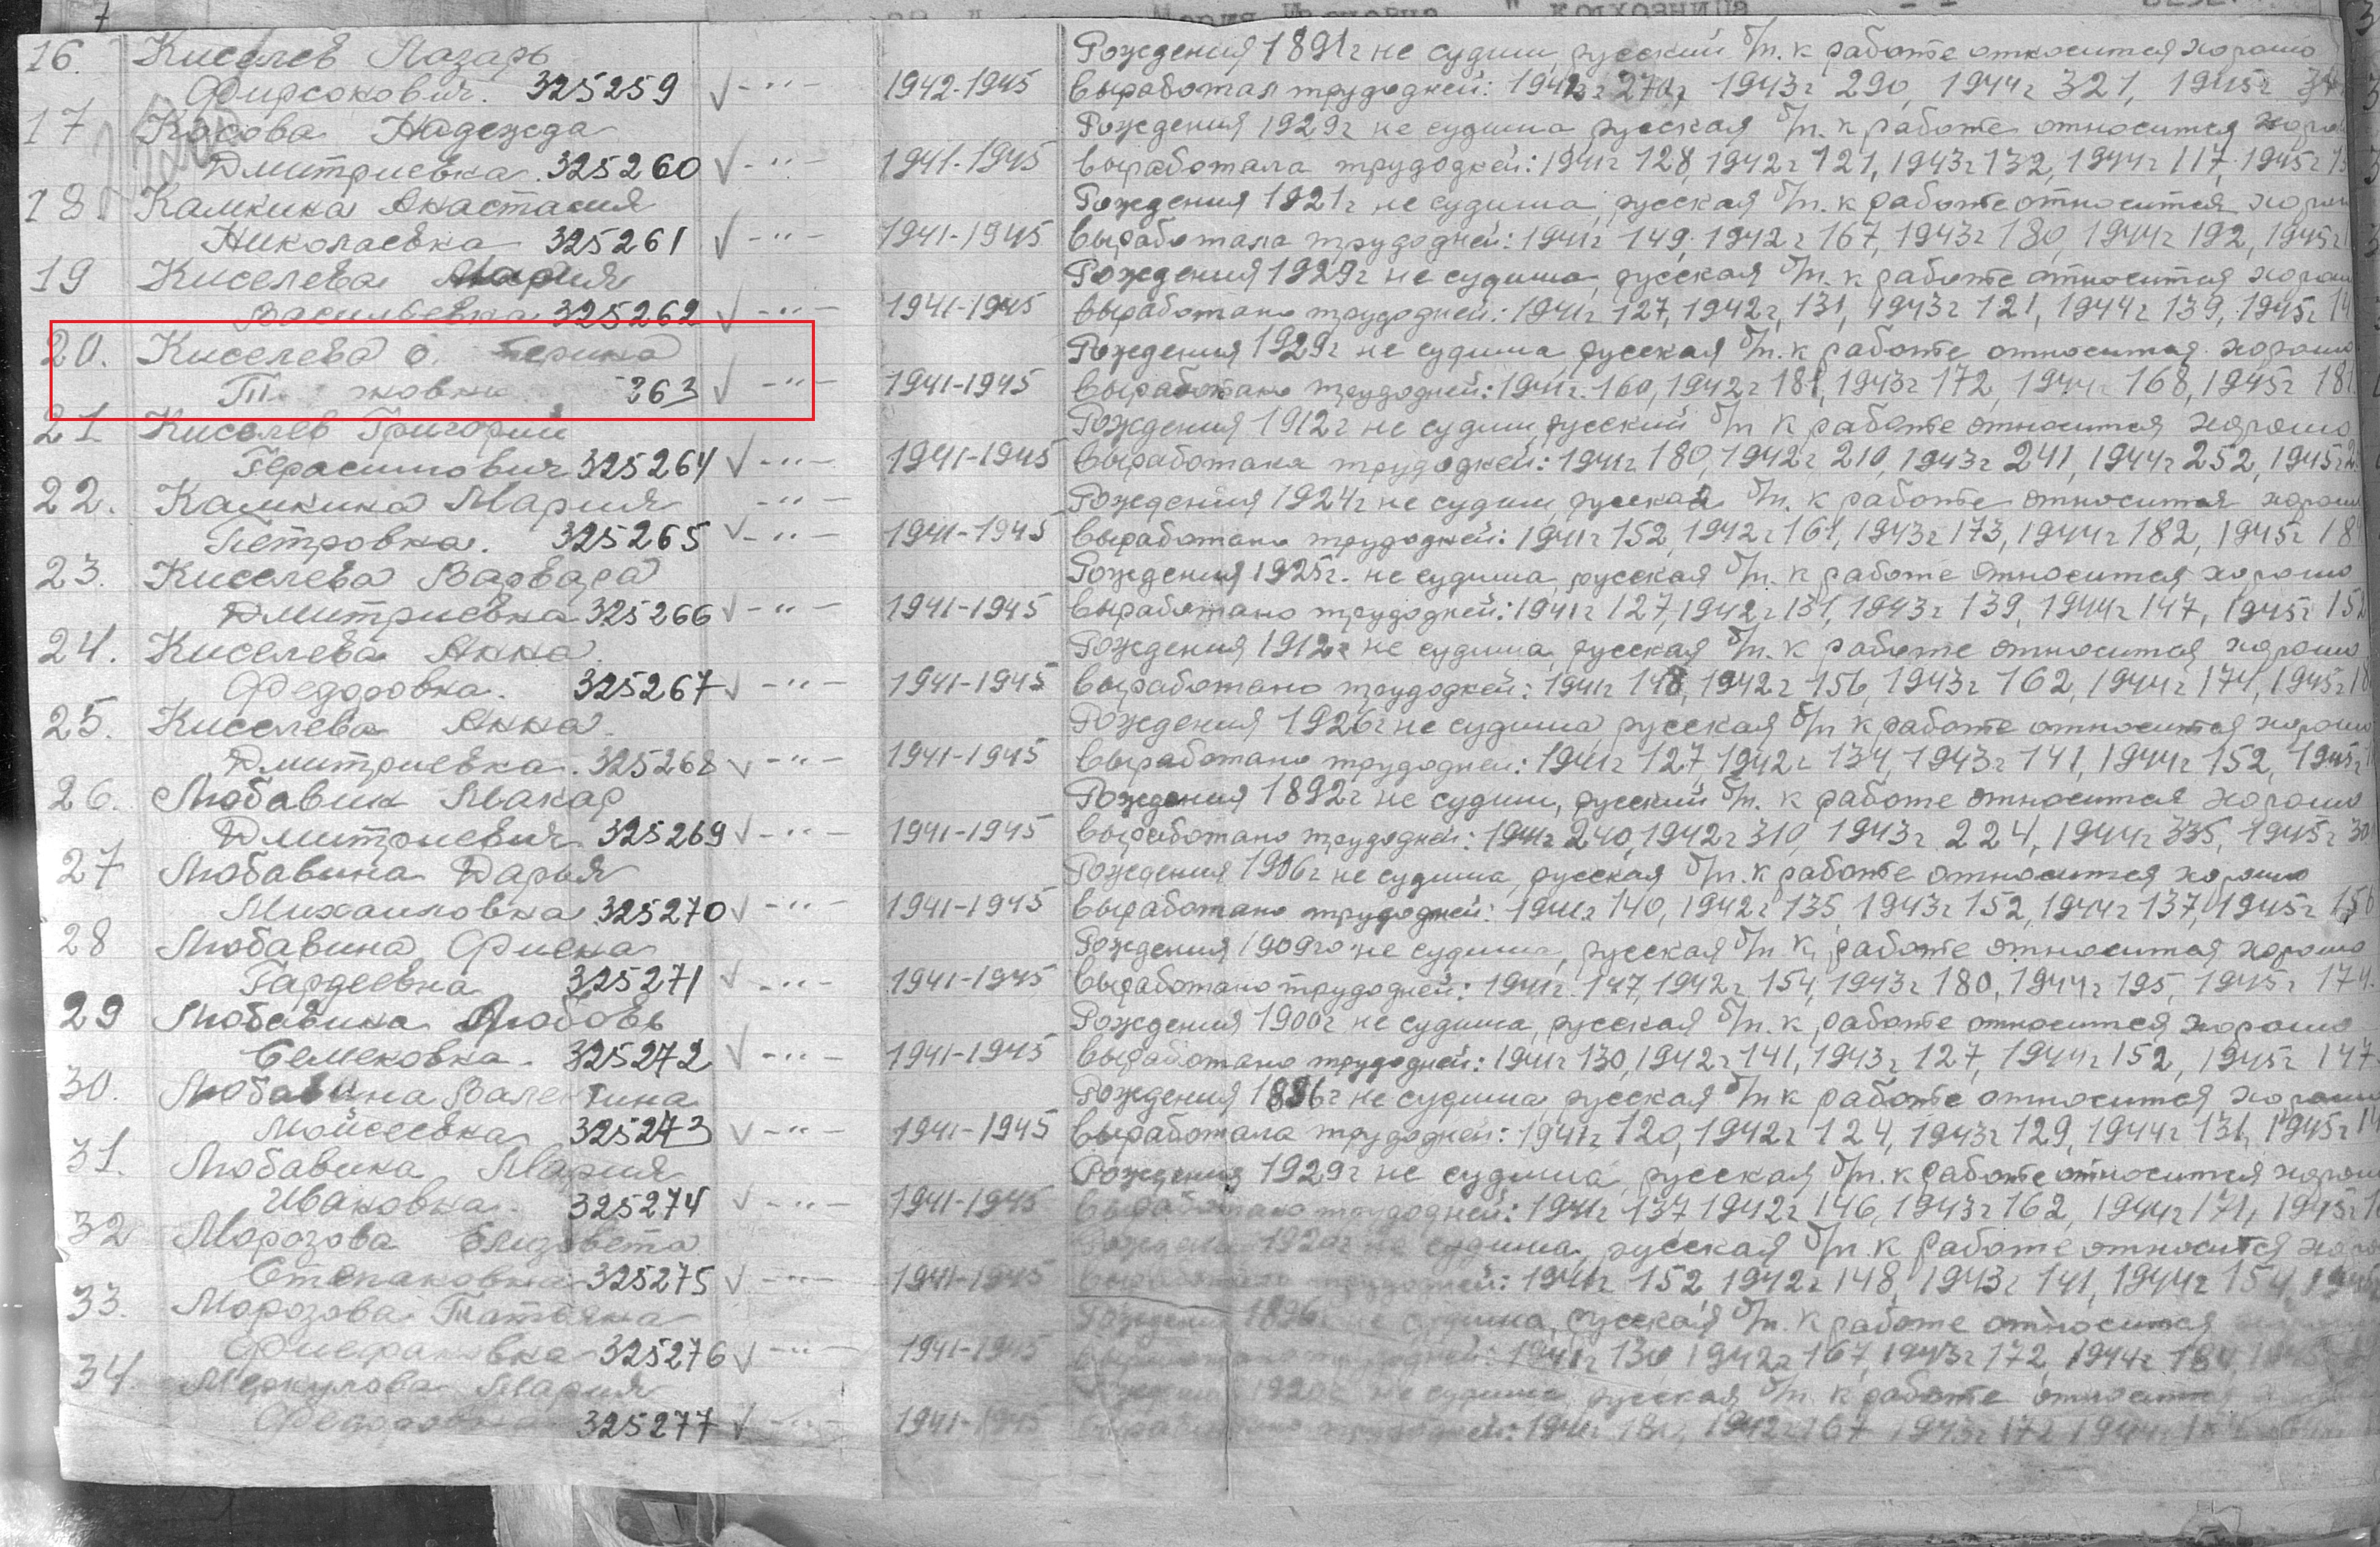 Мария Ивановна " колхозница
16. Киселев Лазарь Рождения 1891г не судим, русский б/п. к работе относится хорошо
Фирсонович. 325259 √ -"- 1942-1945 выработал трудодней: 1942г 270, 1943г 290, 1944г 321, 1945г
17 Косова Надежда Рождения 1929г не судима, русская б/п. к работе относится
Дмитриевна. 325260 √ -"- 1941-1945 выработала трудодней: 1941г 128, 1942г 121, 1943г 132, 1944г 117, 1945г
18. Камкина Анастасия Рождения 1921г не судима, русская б/п. к работе относится
Николаевна 325261 √ -"- 1941-1945 выработала трудодней: 1941г 149, 1942г 167, 1943г 180, 1944г 192, 1945г
19 Киселева Мария Рождения 1929г не судима, русская б/п. к работе относится
Васильевна 325262 √ -"- 1941-1945 выработано трудодней: 1941г 127, 1942г, 131, 1943г 121, 1944г 139, 1945г
20. Киселева Рождения 1929г не судима, русская б/п. к работе относится хорошо
263 √ -"- 1941-1945 выработано трудодней: 1941г. 160, 1942г 181, 1943г 172, 1944г 168, 1945г 181
21. Киселев Григорий Рождения 1912г не судим, русский б/п к работе относится хорошо
Герасимович 325264 √ -"- 1941-1945 выработано трудодней: 1941г 180, 1942г 210, 1943г 241, 1944г 252, 1945г
22. Камкина Мария -"- Рождения 1924г не судим, русская б/п. к работе относится хорошо
Петровна. 325265 √ -"- 1941-1945 выработано трудодней: 1941г 152, 1942г 161, 1943г 173, 1944г 182, 1945г
23. Киселева Варвара Рождения 1925г. не судима, русская б/п. к работе относится хорошо
Дмитриевна 325266 √ -"- 1941-1945 выработано трудодней: 1941г 127, 1942г 131, 1943г 139, 1944г 147, 1945г
24. Киселева Анна Рождения 1912г не судима, русская б/п. к работе относится хорошо
Федоровна. 325267 √ -"- 1941-1945 выработано трудодней: 1941г 148, 1942г 156, 1943г 162, 1944г 174, 1945г
25. Киселева Анна. Рождения 1926г не судима русская б/п к работе относится хорошо
Дмитриевна. 325268 √ -"- 1941-1945 выработано трудодней: 1941г 127, 1942г 134, 1943г 141, 1944г 152, 1945г
26. Любавин Макар Рождения 1892г не судим, русский б/п. к работе относится хорошо
Дмитриевич 325269 √ -"- 1941-1945 выработано трудодней: 1941г 240, 1942г 310, 1943г 224, 1944г 335, 1945г
27 Любавина Дарья Рождения 1906г не судима, русская б/п. к работе относится хорошо
Михаиловна 325270 √ -"- 1941-1945 выработано трудодней: 1941г 140, 1942г 135, 1943г 152, 1944г 137, 1945г
28 Любавина Фиена Рождения 1909го не судима, русская б/п к работе относится хорошо
Гардеевна 325271 √ -"- 1941-1945 выработано трудодней: 1941г. 147, 1942г. 154, 1943г 180, 1944г 195, 1945г 174.
29 Любавина Любовь Рождения 1900г не судима, русская б/п. к работе относится хорошо
Семеновна. 325272 √ -"- 1941-1945 выработано трудодней: 1941г 130, 1942г 141, 1943г 127, 1944г 152, 1945г 147
30. Любавина Валентина Рождения не судима, русская б/п к работе относится хорошо
Мойсеевна 325273 √ -"- 1941-1945 выработала трудодней: 1941г 120, 1942г 124, 1943г 129, 1944г 131, 1945г
31. Любавина Мария Рождения 1929г не судима, русская б/п. к работе относится
Ивановна. 325274 √ -"- 1941-1945 выработано трудодней: 1941г 137, 1942г 146, 1943г 162, 1944г 171, 1945г
32 Морозова Елизовета не судима, русская б/п. к работе относится
Степановна 325275 √ -"- 1941-1945 трудодней: 1941г 152, 1942г 148, 1943г 141, 1944г 154,
33. Морозова Татьяна русская б/п. к работе относится
325276 √ -"- 1941-1945 1941г 130, 1942г 167, 1943г 172, 1944г
34. Меркулова Мария не судима русская б/п. к работе
325277 √ -"- 1942г 167 1943г 172